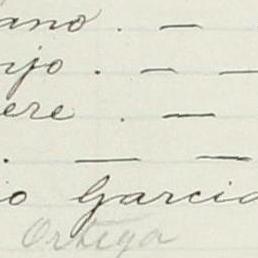 ano. —
njo. — —
ere. —
. — —
io Garcia
Ortega